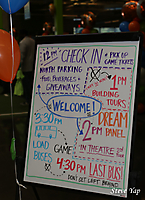 12 PM CHECK IN
+ PICK UP
GAME TICKETS
NORTH PARKING
FOOD, BEVERAGES +
GIVEAWAYS
1 PM
BUILDING
TOURS
WELCOME!
3:30 PM
LOAD
BUSES
DREAM
PM PANEL
IN THEATRE
GAME
4:30 PM LAST BUS!
DON'T GET LEFT BEHIND
Steve Yap